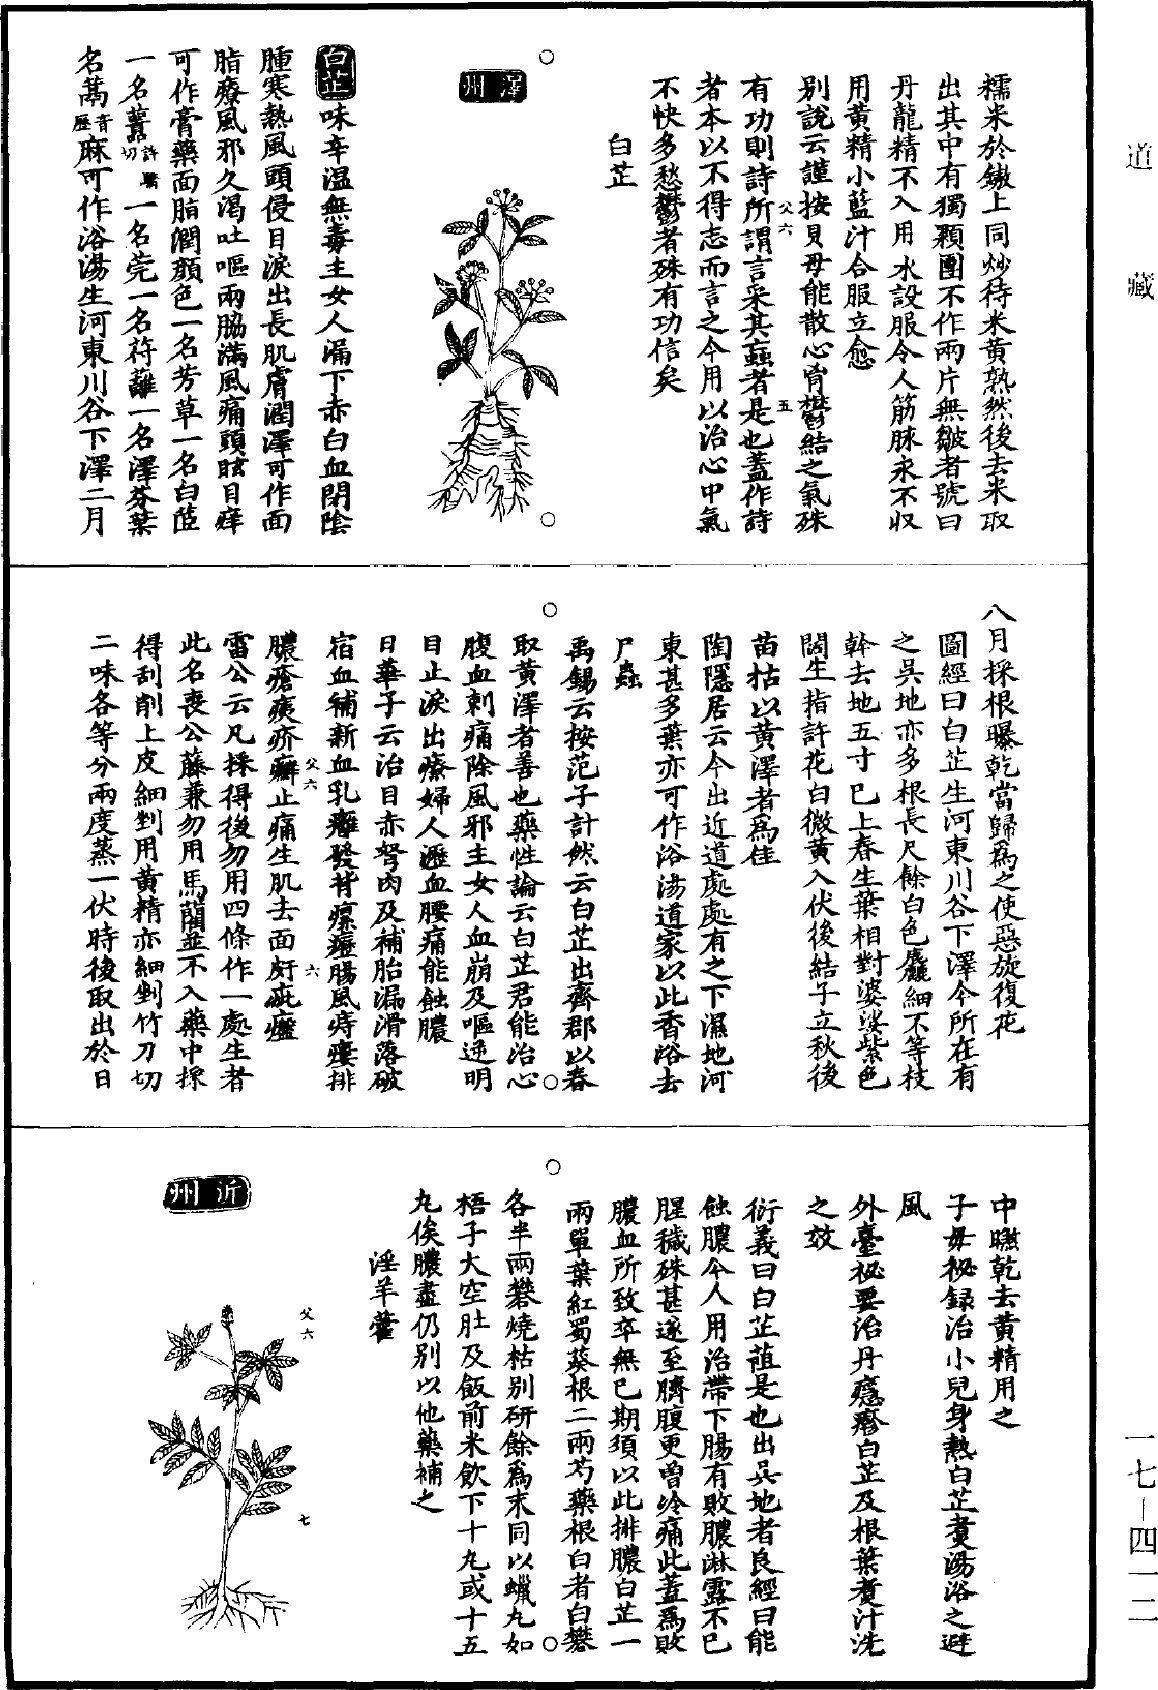 道藏
糯米於鏾上同炒待米黃熟然後去米取
出其中有獨顆團不作兩片無皺者號曰
丹龍精不入用水設服令人筋脉永不收
用黃精小藍汁合服立愈
別說云謹按貝母能散心胷鬱結之氣殊
父六
五
有功則詩所謂言采其蝱者是也蓋作詩
者本以不得志而言之今用以治心中氣
不快多愁鬱者殊有功信矣
白芷
澤州
白芷味辛温無毒主女人漏下赤白血閉陰
腫寒熱風頭侵目淚出長肌膚潤澤可作面
脂療風邪久渴吐嘔兩脇滿風痛頭眩目痒
可作膏藥面脂潤顏色一名芳草一名白茝
一名蘺許驕切一名莞一名苻蘺一名澤芬葉
名蒚音歷麻可作浴湯生河東川谷下澤二月
八月採根曝乾當歸爲之使惡旋復花
圖經曰白芷生河東川谷下澤今所在有
之吳地亦多根長尺餘白色麤細不等枝
幹去地五寸已上春生葉相對婆娑紫色
闊生指許花白微黃入伏後結子立秋後
苗枯以黃澤者爲佳
陶隱居云今出近道處處有之下濕地河
東甚多葉亦可作浴湯道家以此香浴去
尸蟲
禹錫云按范子計然云白芷出齊郡以春
取黃澤者善也藥性論云白芷君能治心
腹血刺痛除風邪主女人血崩及嘔逆明
目止淚出療婦人瀝血腰痛能蝕膿
日華子云治目赤弩肉及補胎漏滑落破
宿血補新血乳癰發背瘰癧腸風痔瘻排
父六
六
膿瘡痍疥癬止痛生肌去面皯疵瘢
雷公云凡採得後勿用四條作一處生者
此名喪公藤兼勿用馬藺並不入藥中採
得刮削上皮細剉用黃精亦細剉竹刀切
二味各等分兩度蒸一伏時後取出於日
中㬠乾去黃精用之
子母祕録治小兒身熱白芷煑湯浴之避
風
外臺祕要治丹癮瘮白芷及根葉煑汁洗
之效
衍義曰白芷茝是也出吳地者良經曰能
蝕膿今人用治帶下腸有敗膿淋露不已
腥穢殊甚遂至臍腹更曾冷痛此蓋爲敗
膿血所致卒無已期須以此排膿白芷一
兩單葉紅蜀葵根二兩芍藥根白者白礬
各半兩礬燒枯別研餘爲末同以蠟丸如
梧子大空肚及飯前米飲下十丸或十五
丸俟膿盡仍別以他藥補之
淫羊藿
父六
七
沂州
一七—四一二